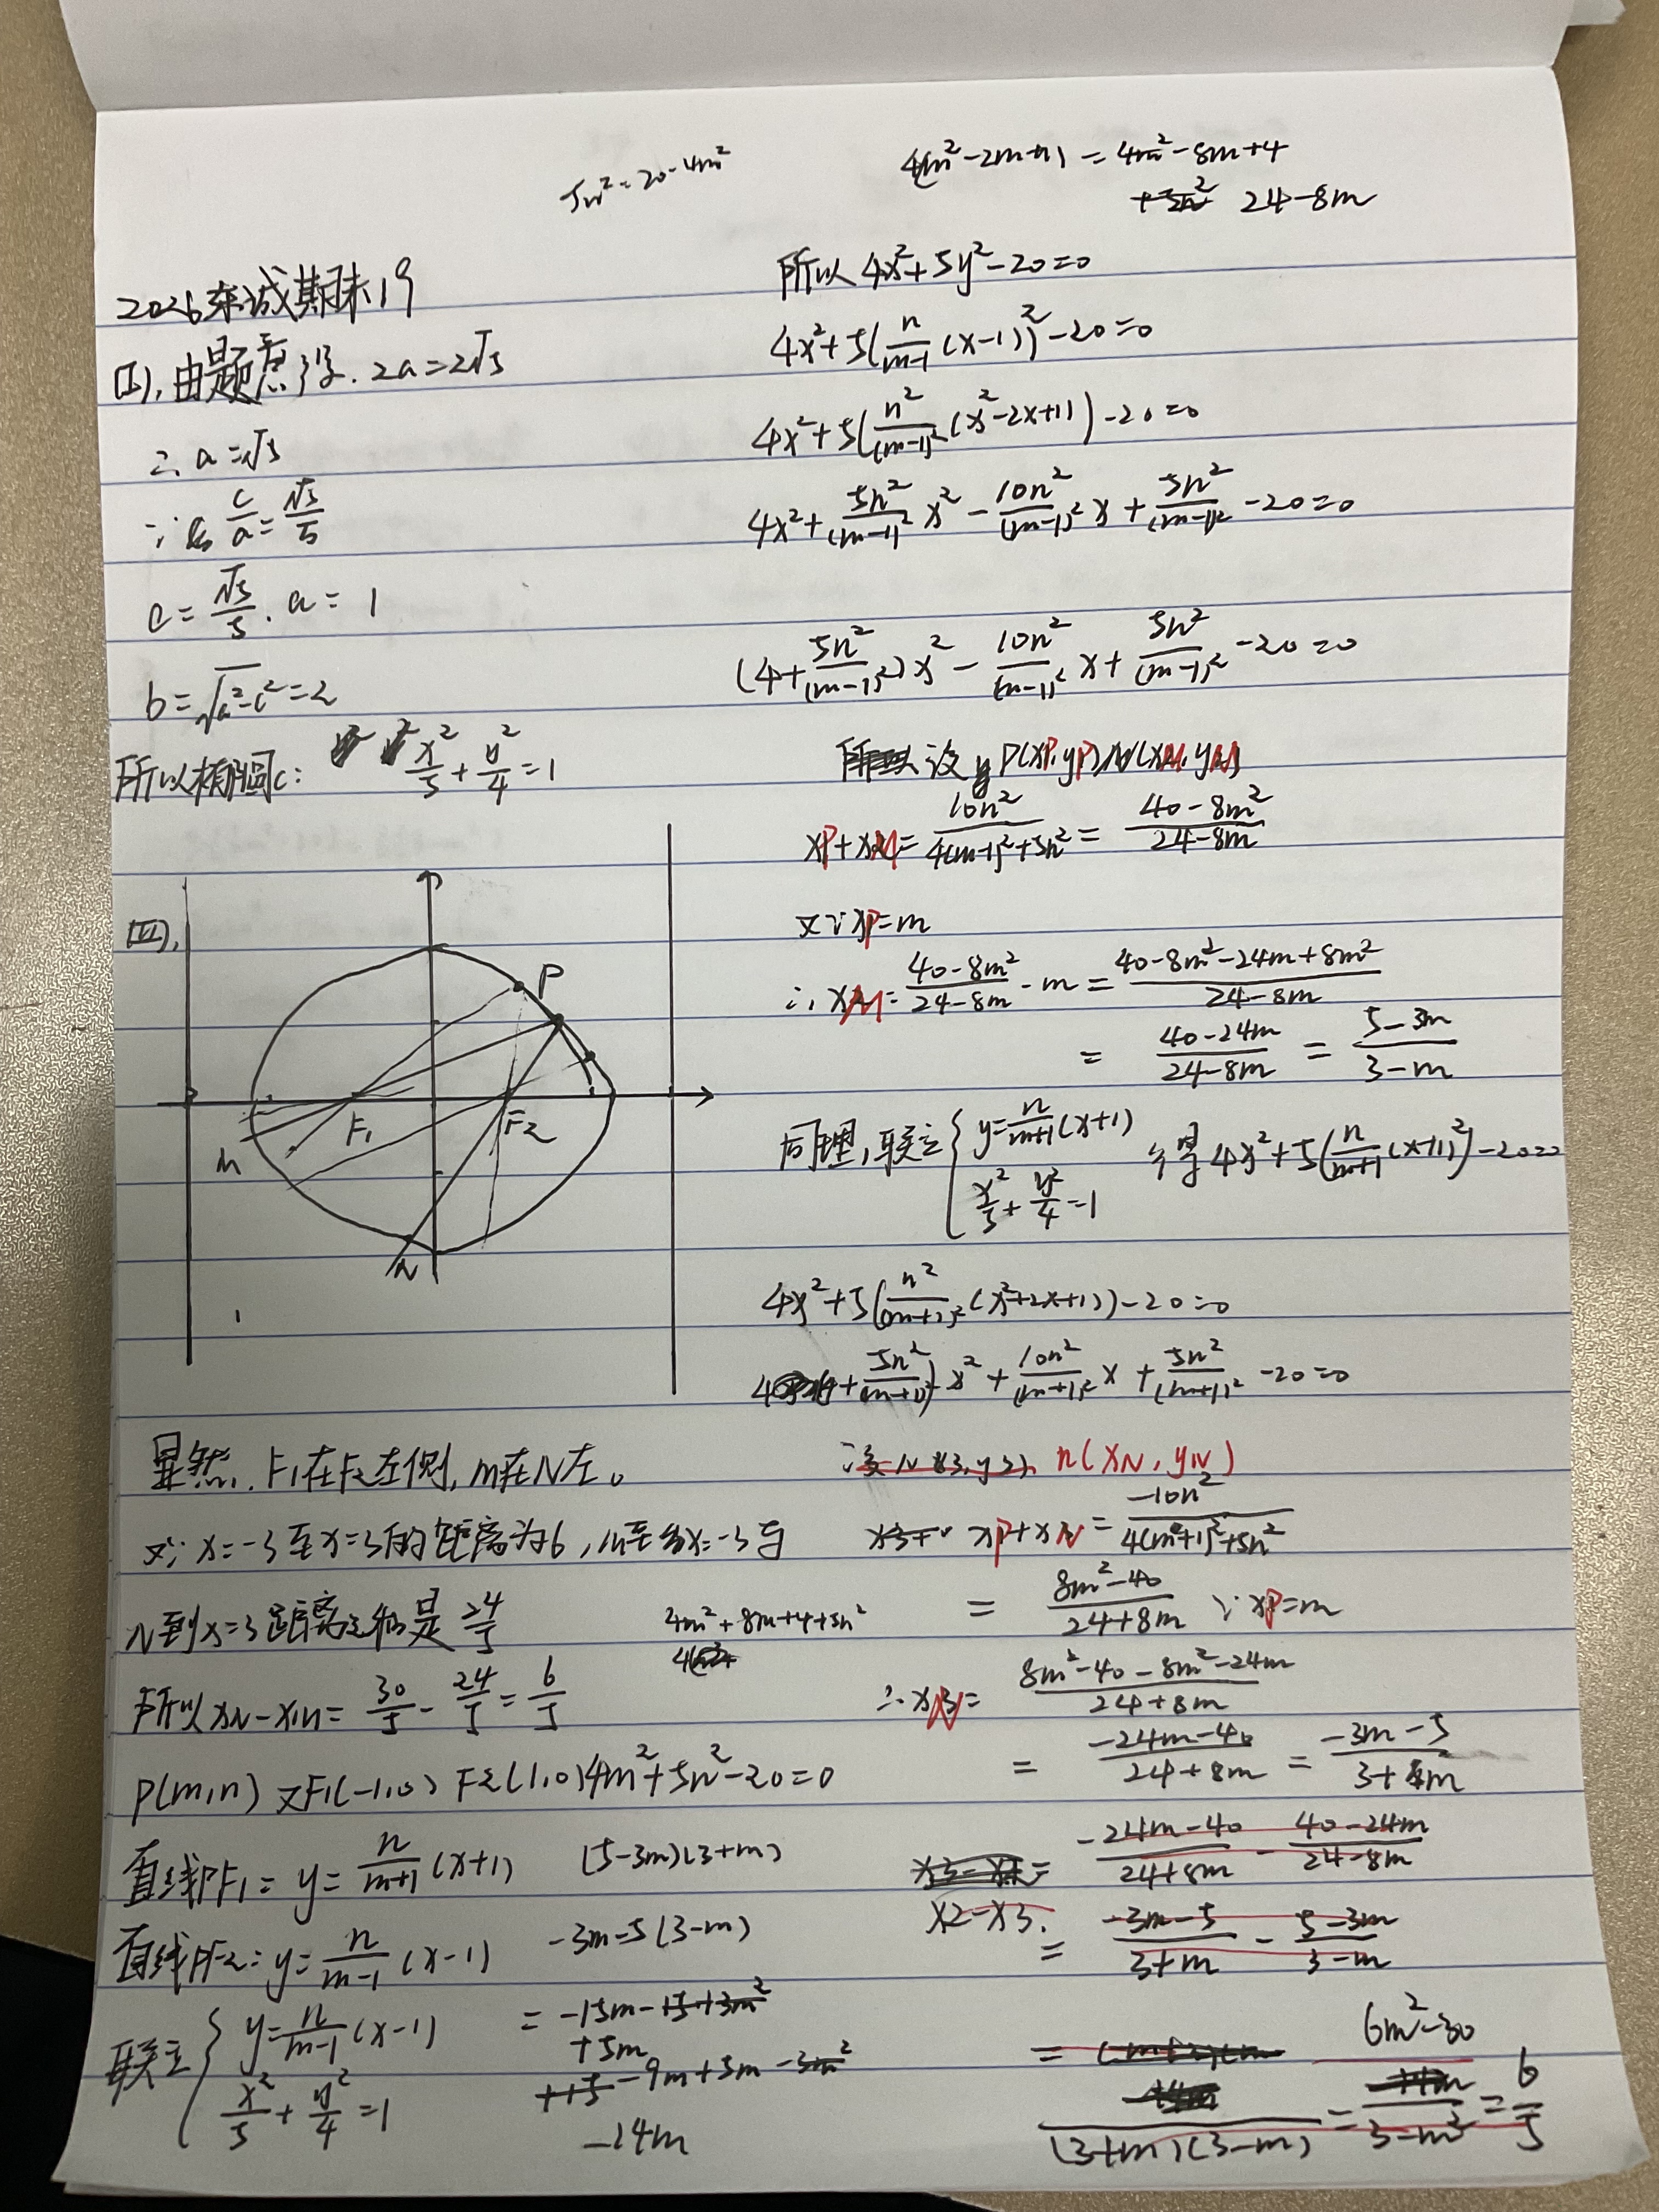 5n²=20-4m²
4(m²-2m+1)=4m²-8m+4
+5n² 24-8m
2026东城期末19
(Ⅰ),由题意得.2a=2√5
∴a=√5
∵ c/a=√5/5
c=√5/5·a=1
b=√(a²-c²)=2
所以椭圆C: x²/5+y²/4=1
(Ⅱ),
P
F1
F2
M
N
显然,F1在F2左侧,M在N左。
又∵x=-3至x=3的距离为6,M至x=-3与
N到x=3距离之和是24/5
所以xN-xM=30/5-24/5=6/5
P(m,n) 又F1(-1,0) F2(1,0) 4m²+5n²-20=0
直线PF1=y=n/(m+1)(x+1)
(5-3m)(3+m)
直线PF2:y=n/(m-1)(x-1)
-3m-5(3-m)
联立{y=n/(m-1)(x-1)
x²/5+y²/4=1
=-15m-15+3m²
+5m
+15-9m+5m-3m²
-14m
所以4x²+5y²-20=0
4x²+5(n/(m-1)(x-1))²-20=0
4x²+5(n²/(m-1)²(x²-2x+1))-20=0
4x²+5n²/(m-1)²x²-10n²/(m-1)²x+5n²/(m-1)²-20=0
(4+5n²/(m-1)²)x²-10n²/(m-1)²x+5n²/(m-1)²-20=0
所以设P(xP,yP)M(xM,yM)
xP+xM=10n²/(4(m-1)²+5n²)=(40-8m²)/(24-8m)
又∵xP=m
∴xM=(40-8m²)/(24-8m)-m=(40-8m²-24m+8m²)/(24-8m)
=(40-24m)/(24-8m)=(5-3m)/(3-m)
同理,联立{y=n/(m+1)(x+1)
x²/5+y²/4=1
得4x²+5(n/(m+1)(x+1)²)-20=0
4x²+5(n²/(m+1)²(x²+2x+1))-20=0
(4+5n²/(m+1)²)x²+10n²/(m+1)²x+5n²/(m+1)²-20=0
设N(x3,y3), n(xN,yN)
xP+xN=-10n²/(4(m+1)²+5n²)
4m²+8m+4+5n²
=(8m²-40)/(24+8m) ∵xP=m
∴xN=(8m²-40-8m²-24m)/(24+8m)
=(-24m-40)/(24+8m)=(-3m-5)/(3+m)
=(-24m-40)/(24+8m)-(40-24m)/(24-8m)
x2-x3.
=(-3m-5)/(3+m)-(5-3m)/(3-m)
=/(3+m)(3-m)=(6m²-30)/(3-m²)=6/5